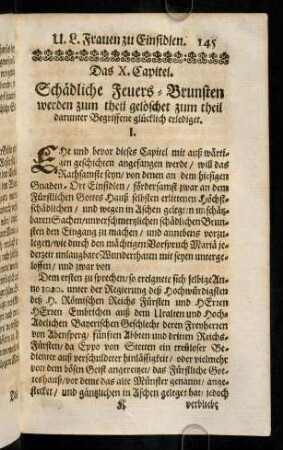 U. L. Frauen zu Einsidlen. 145
Das X. Capitel.
Schädliche Feuers-Brunsten
werden zum theil gelöschet zum theil
darunter Begriffene glücklich erlediget.
I.
EHe und bevor dieses Capitel mit auß wärti-
gen geschichten angefangen werde / will das
Rathsamste seyn / von denen an dem hiesigen
Gnaden-Ort Einsidlen / fördersamst zwar an dem
Fürstlichen Gottes Hauß selbsten erlittenen Höchst-
schädlichen / und wegen in Aschen gelegten unschätz-
baren Sachen / unverschmertzlichen schädlichen Brun-
sten den Eingang zu machen / und annebens vorzu-
legen / wie durch den mächtigen Vorspruch Mariä je-
derzeit unlaugbare Wunderthaten mit seyen unterge-
loffen / und zwar von
Dem ersten zu sprechen / so ereignete sich selbige An-
no 1020. unter der Regierung deß Hochwürdigsten
deß H. Römischen Reichs Fürsten und HErren
HErren Embrichen auß dem Uralten und Hoch-
Adelichen Bayerschen Geschlecht deren Freyherren
von Abensperg / fünften Abbten und dritten Reichs-
Fürsten / da Eppo von Stetten ein treüloser Be-
dienter auß verschuldeter hinlässigkeit / oder vielmehr
von dem bösen Geist angereitzet / das Fürstliche Got-
teshauß / vor deme das alte Münster genannt / ange-
stecket / und gäntzlichen in Aschen geleget hat / jedoch
K verblibe